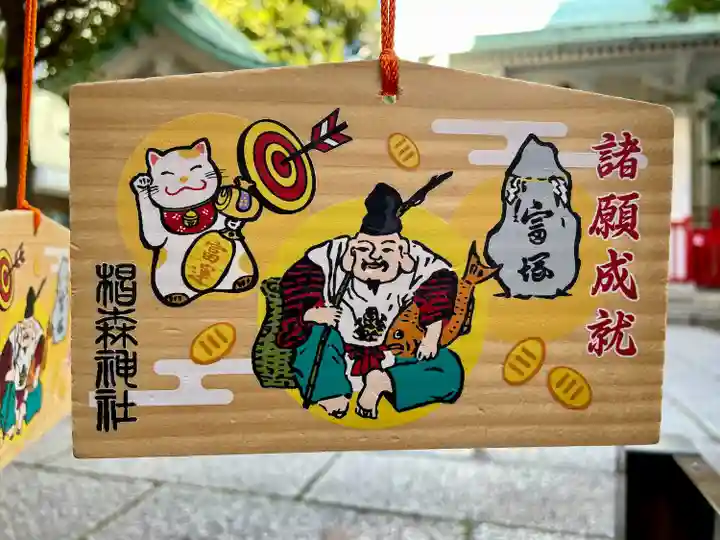 諸願成就
富塚
富運
椙森神社